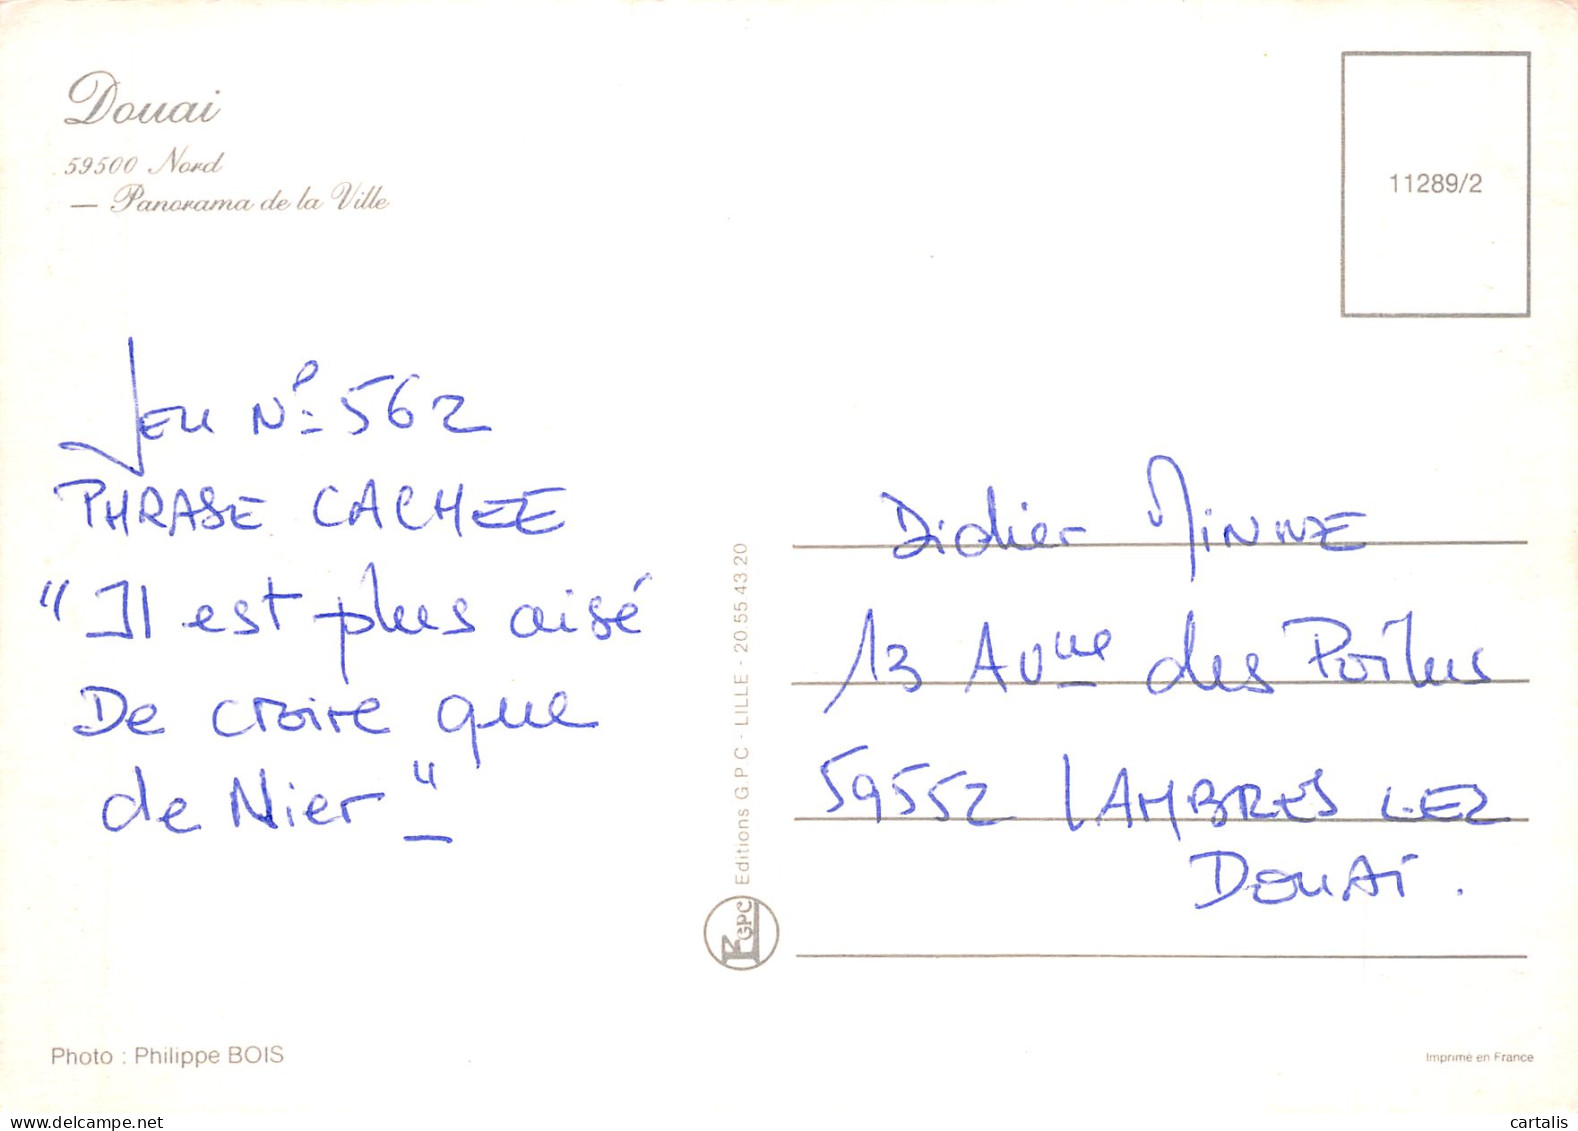 Douai
59500 Nord
— Panorama de la Ville
11289/2
Jeu No 562
PHRASE CACHEE
"Il est plus aisé
De croire que
de Nier"
Editions G.P.C - LILLE - 20.55 43 20
GPC
Didier MINNE
13 Avnue des Poilus
59552 LAMBRES LEZ
DOUAI.
Photo : Philippe BOIS
Imprimé en France
cartalis